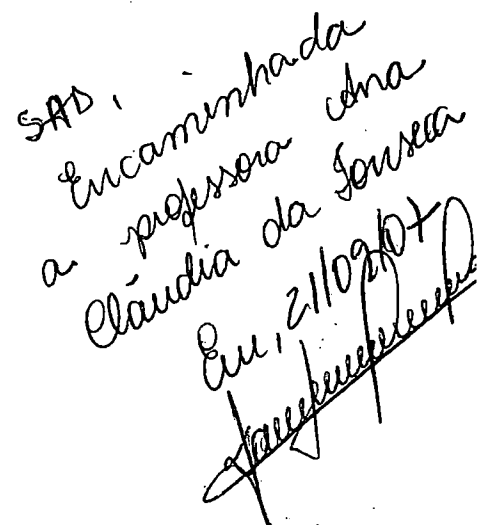 SAD,
Encaminhada
a professora Ana
Cláudia da Fonseca
Em, 21/09/07